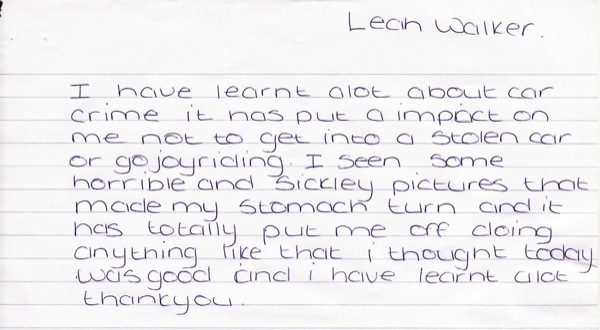 Leah Walker.
I have learnt alot about car
crime it has put a impact on
me not to get into a stolen car
or go joyriding. I seen some
horrible and sickley pictures that
made my stomach turn and it
has totally put me off doing
anything like that i thought today
was good and i have learnt alot
thankyou.